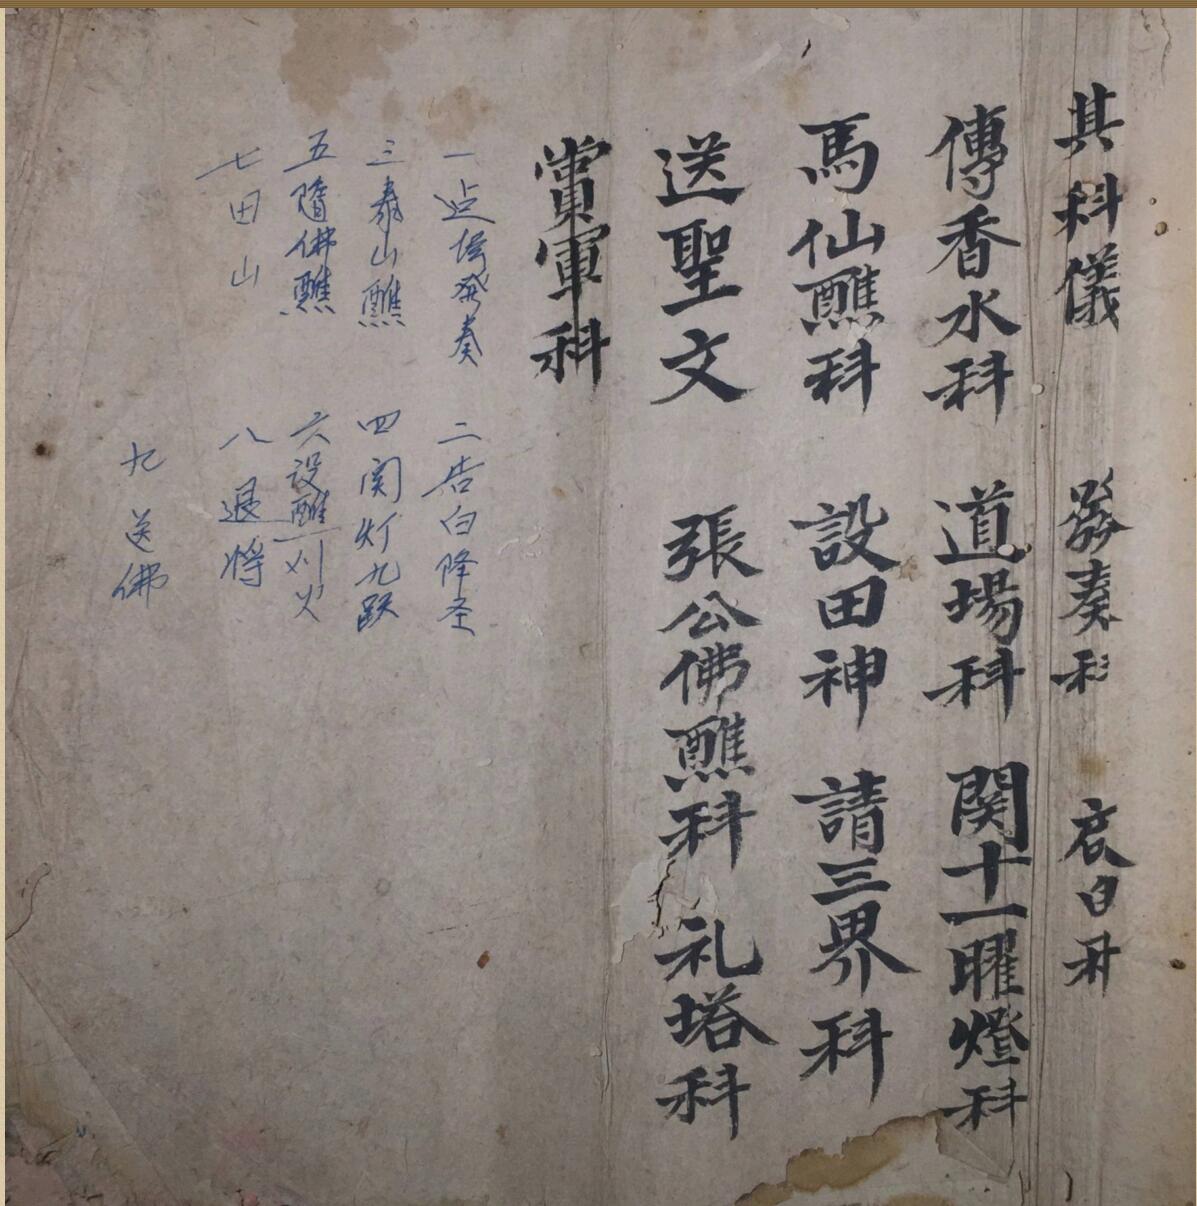 其科儀 發奏科
傳香水科 道場科 関十一曜燈科
馬仙醮科 設田神 請三界科
送聖文 張公佛醮科 礼塔科
賞軍科
一点場発奏 二告白降圣
三泰山醮 四関灯九跃
五隨佛醮 六设醮刈火
七田山 八退将
九送佛